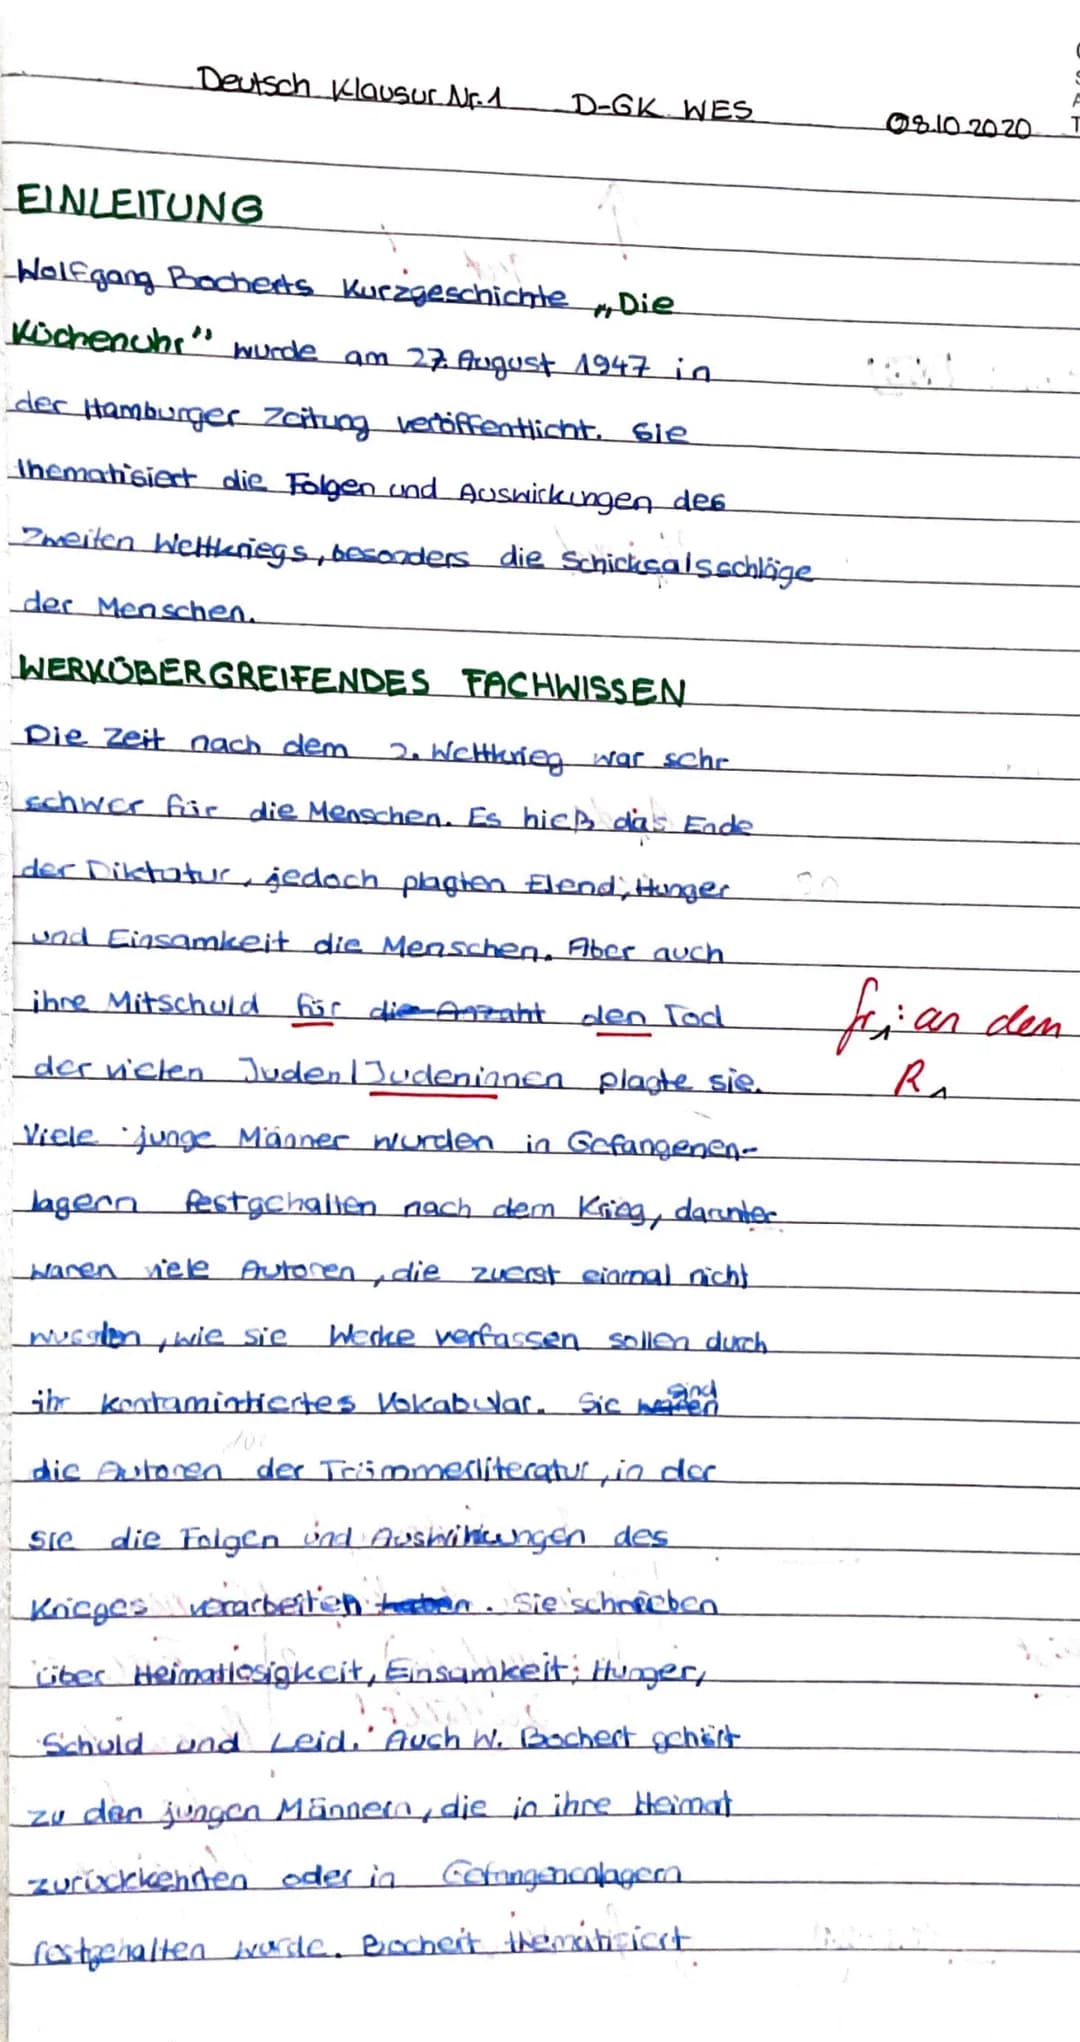 Deutsch Klausur Nr. 1 D-GK WES 08.10.2020
EINLEITUNG
Wolfgang Bocherts Kurzgeschichte „Die
Küchenuhr" wurde am 27. August 1947 in
der Hamburger Zeitung veröffentlicht. Sie
thematisiert die Folgen und Auswickungen des
Zweiten Weltkriegs, besonders die Schicksalsschläge
der Menschen.
WERKÜBERGREIFENDES FACHWISSEN
Die Zeit nach dem 2. Weltkrieg war sehr
schwer für die Menschen. Es hieß das Ende
der Diktatur, jedoch plagten Elend, Hunger
und Einsamkeit die Menschen. Aber auch
ihre Mitschuld für die Anzahl den Tod fr,: an dem
der vielen Juden/Judeninnen plagte sie. R
Viele junge Männer wurden in Gefangenen-
lagern festgehalten nach dem Krieg, darunter
waren viele Autoren, die zuerst einmal nicht
wussten, wie sie Werke verfassen sollen durch
ihr kontamintiertes Vokabular. Sie sind
die Autoren der Trümmerliteratur, in der
sie die Folgen und Auswirkungen des
Krieges verarbeiten haben. Sie schreiben
über Heimatlosigkeit, Einsamkeit, Hunger,
Schuld und Leid. Auch W. Bochert gehört
zu den jungen Männern, die in ihre Heimat
zurückkehrten oder in Gefangenenlagern
festgehalten wurde. Bochert thematisiert